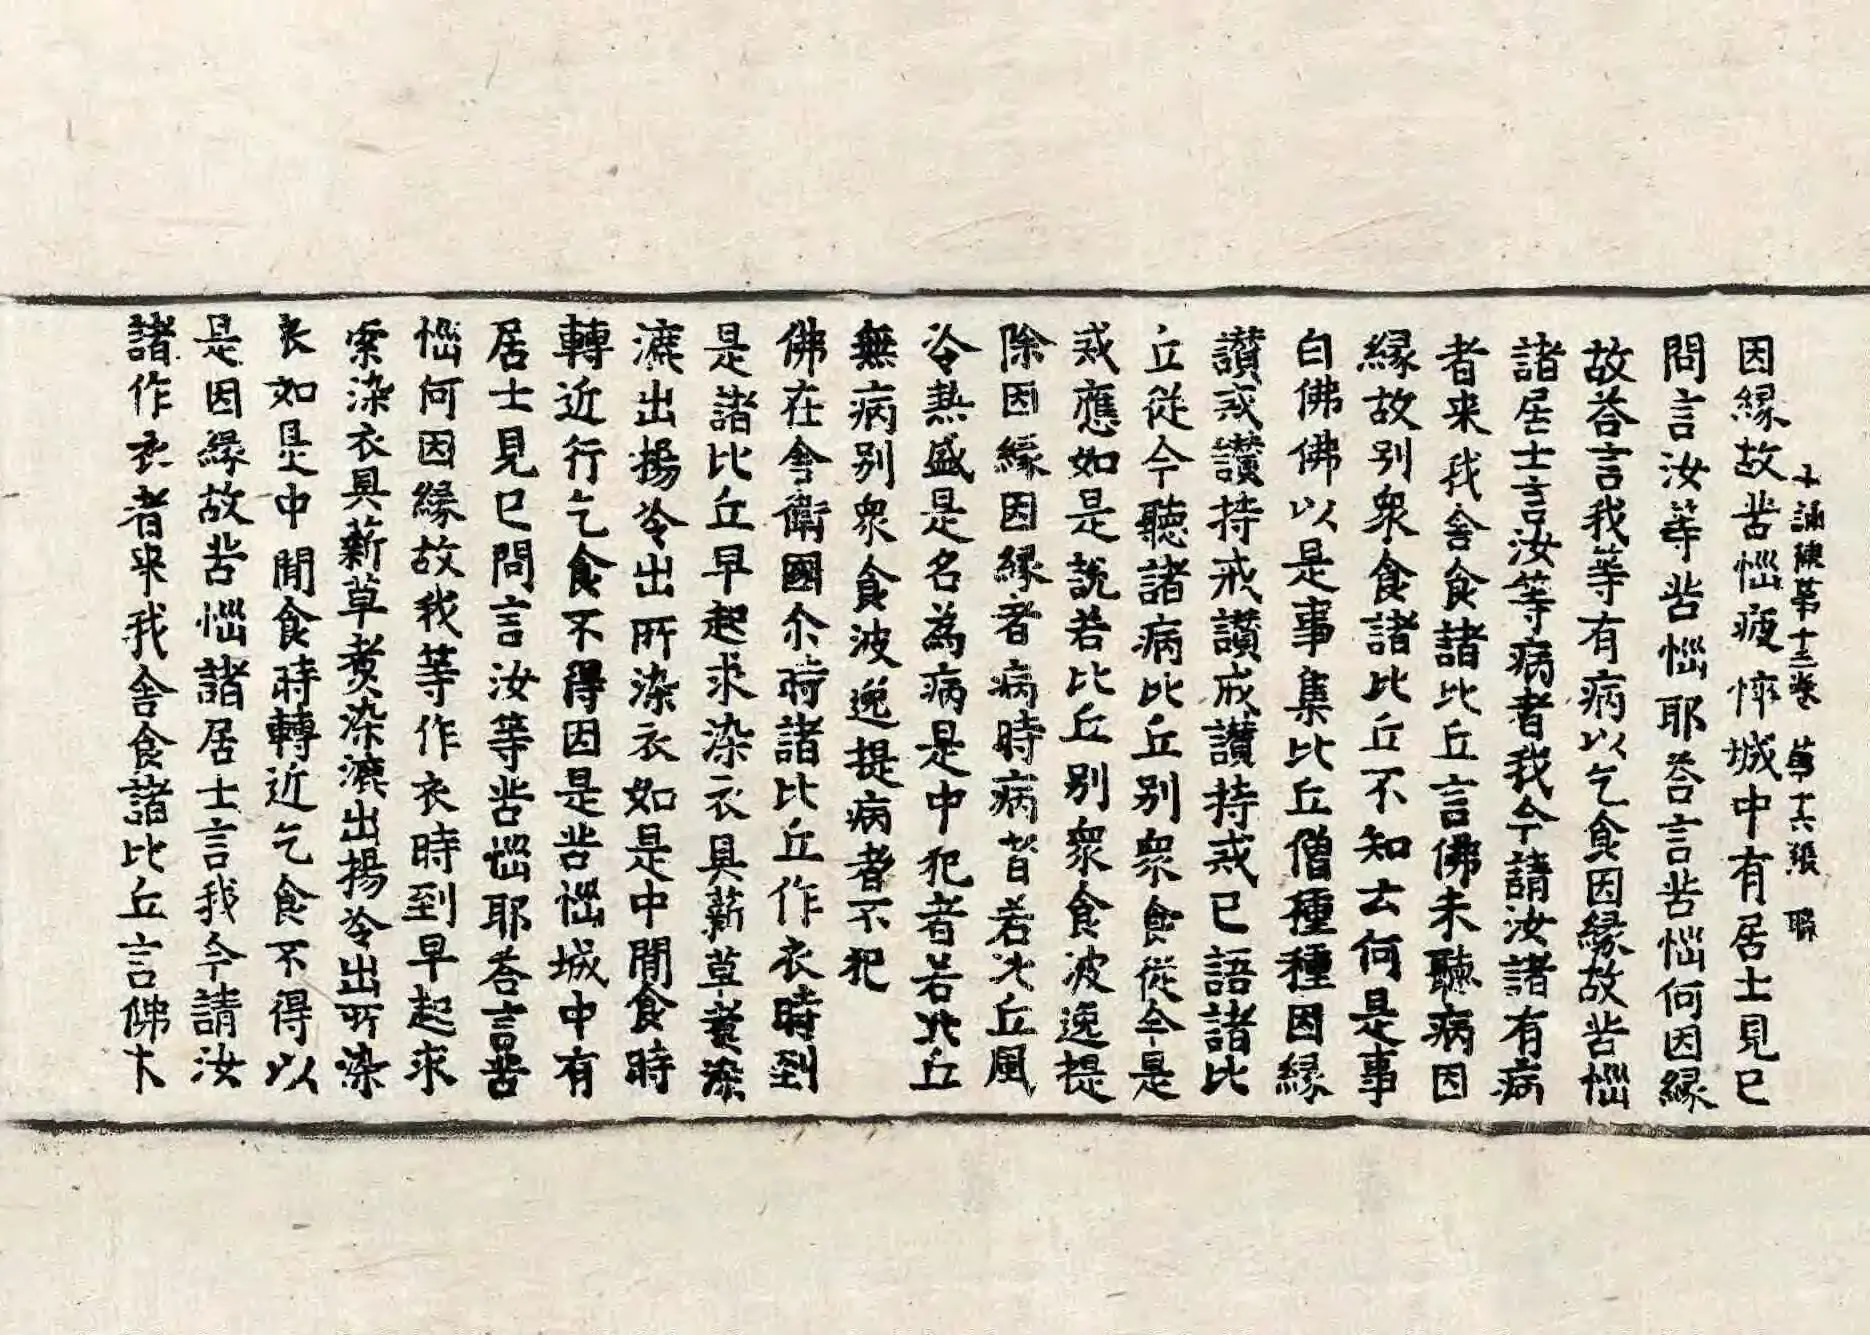 十誦律第十三卷 第十六張 職
因縁故苦惱疲悴城中有居士見已
問言汝等苦惱耶荅言苦惱何因縁
故荅言我等有病以乞食因縁故苦惱
諸居士言汝等病者我今請汝諸有病
者来我舍食諸比丘言佛未聽病因
縁故別衆食諸比丘不知云何是事
白佛佛以是事集比丘僧種種因縁
讃戒讃持戒讃戒讃持戒已語諸比
丘從今聽諸病比丘別衆食從今是
戒應如是說若比丘別衆食波逸提
除因縁因縁者病時病者若比丘風
冷熱盛是名為病是中犯者若比丘
無病別衆食波逸提病者不犯
佛在舍衛國尒時諸比丘作衣時到
是諸比丘早起求染衣具薪草煮染
漉出揚冷出所染衣如是中間食時
轉近行乞食不得因是苦惱城中有
居士見已問言汝等苦惱耶荅言苦
惱何因縁故我等作衣時到早起求
索染衣具薪草煮染漉出揚冷出所染
衣如是中間食時轉近乞食不得以
是因縁故苦惱諸居士言我今請汝
諸作衣者来我舍食諸比丘言佛未